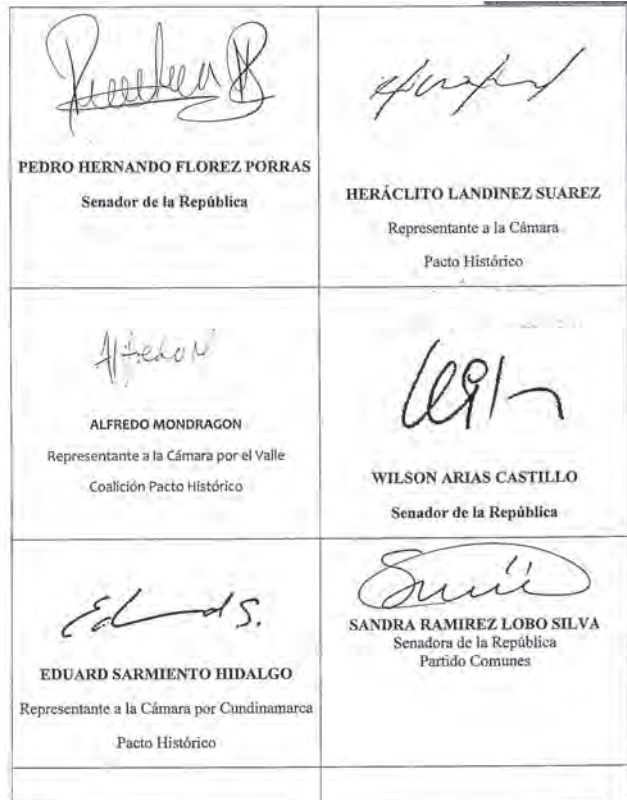 PEDRO HERNANDO FLOREZ PORRAS
Senador de la República
HERÁCLITO LANDINEZ SUAREZ
Representante a la Cámara
Pacto Histórico
ALFREDO MONDRAGON
Representante a la Cámara por el Valle
Coalición Pacto Histórico
WILSON ARIAS CASTILLO
Senador de la República
EDUARD SARMIENTO HIDALGO
Representante a la Cámara por Cundinamarca
Pacto Histórico
SANDRA RAMIREZ LOBO SILVA
Senadora de la República
Partido Comunes